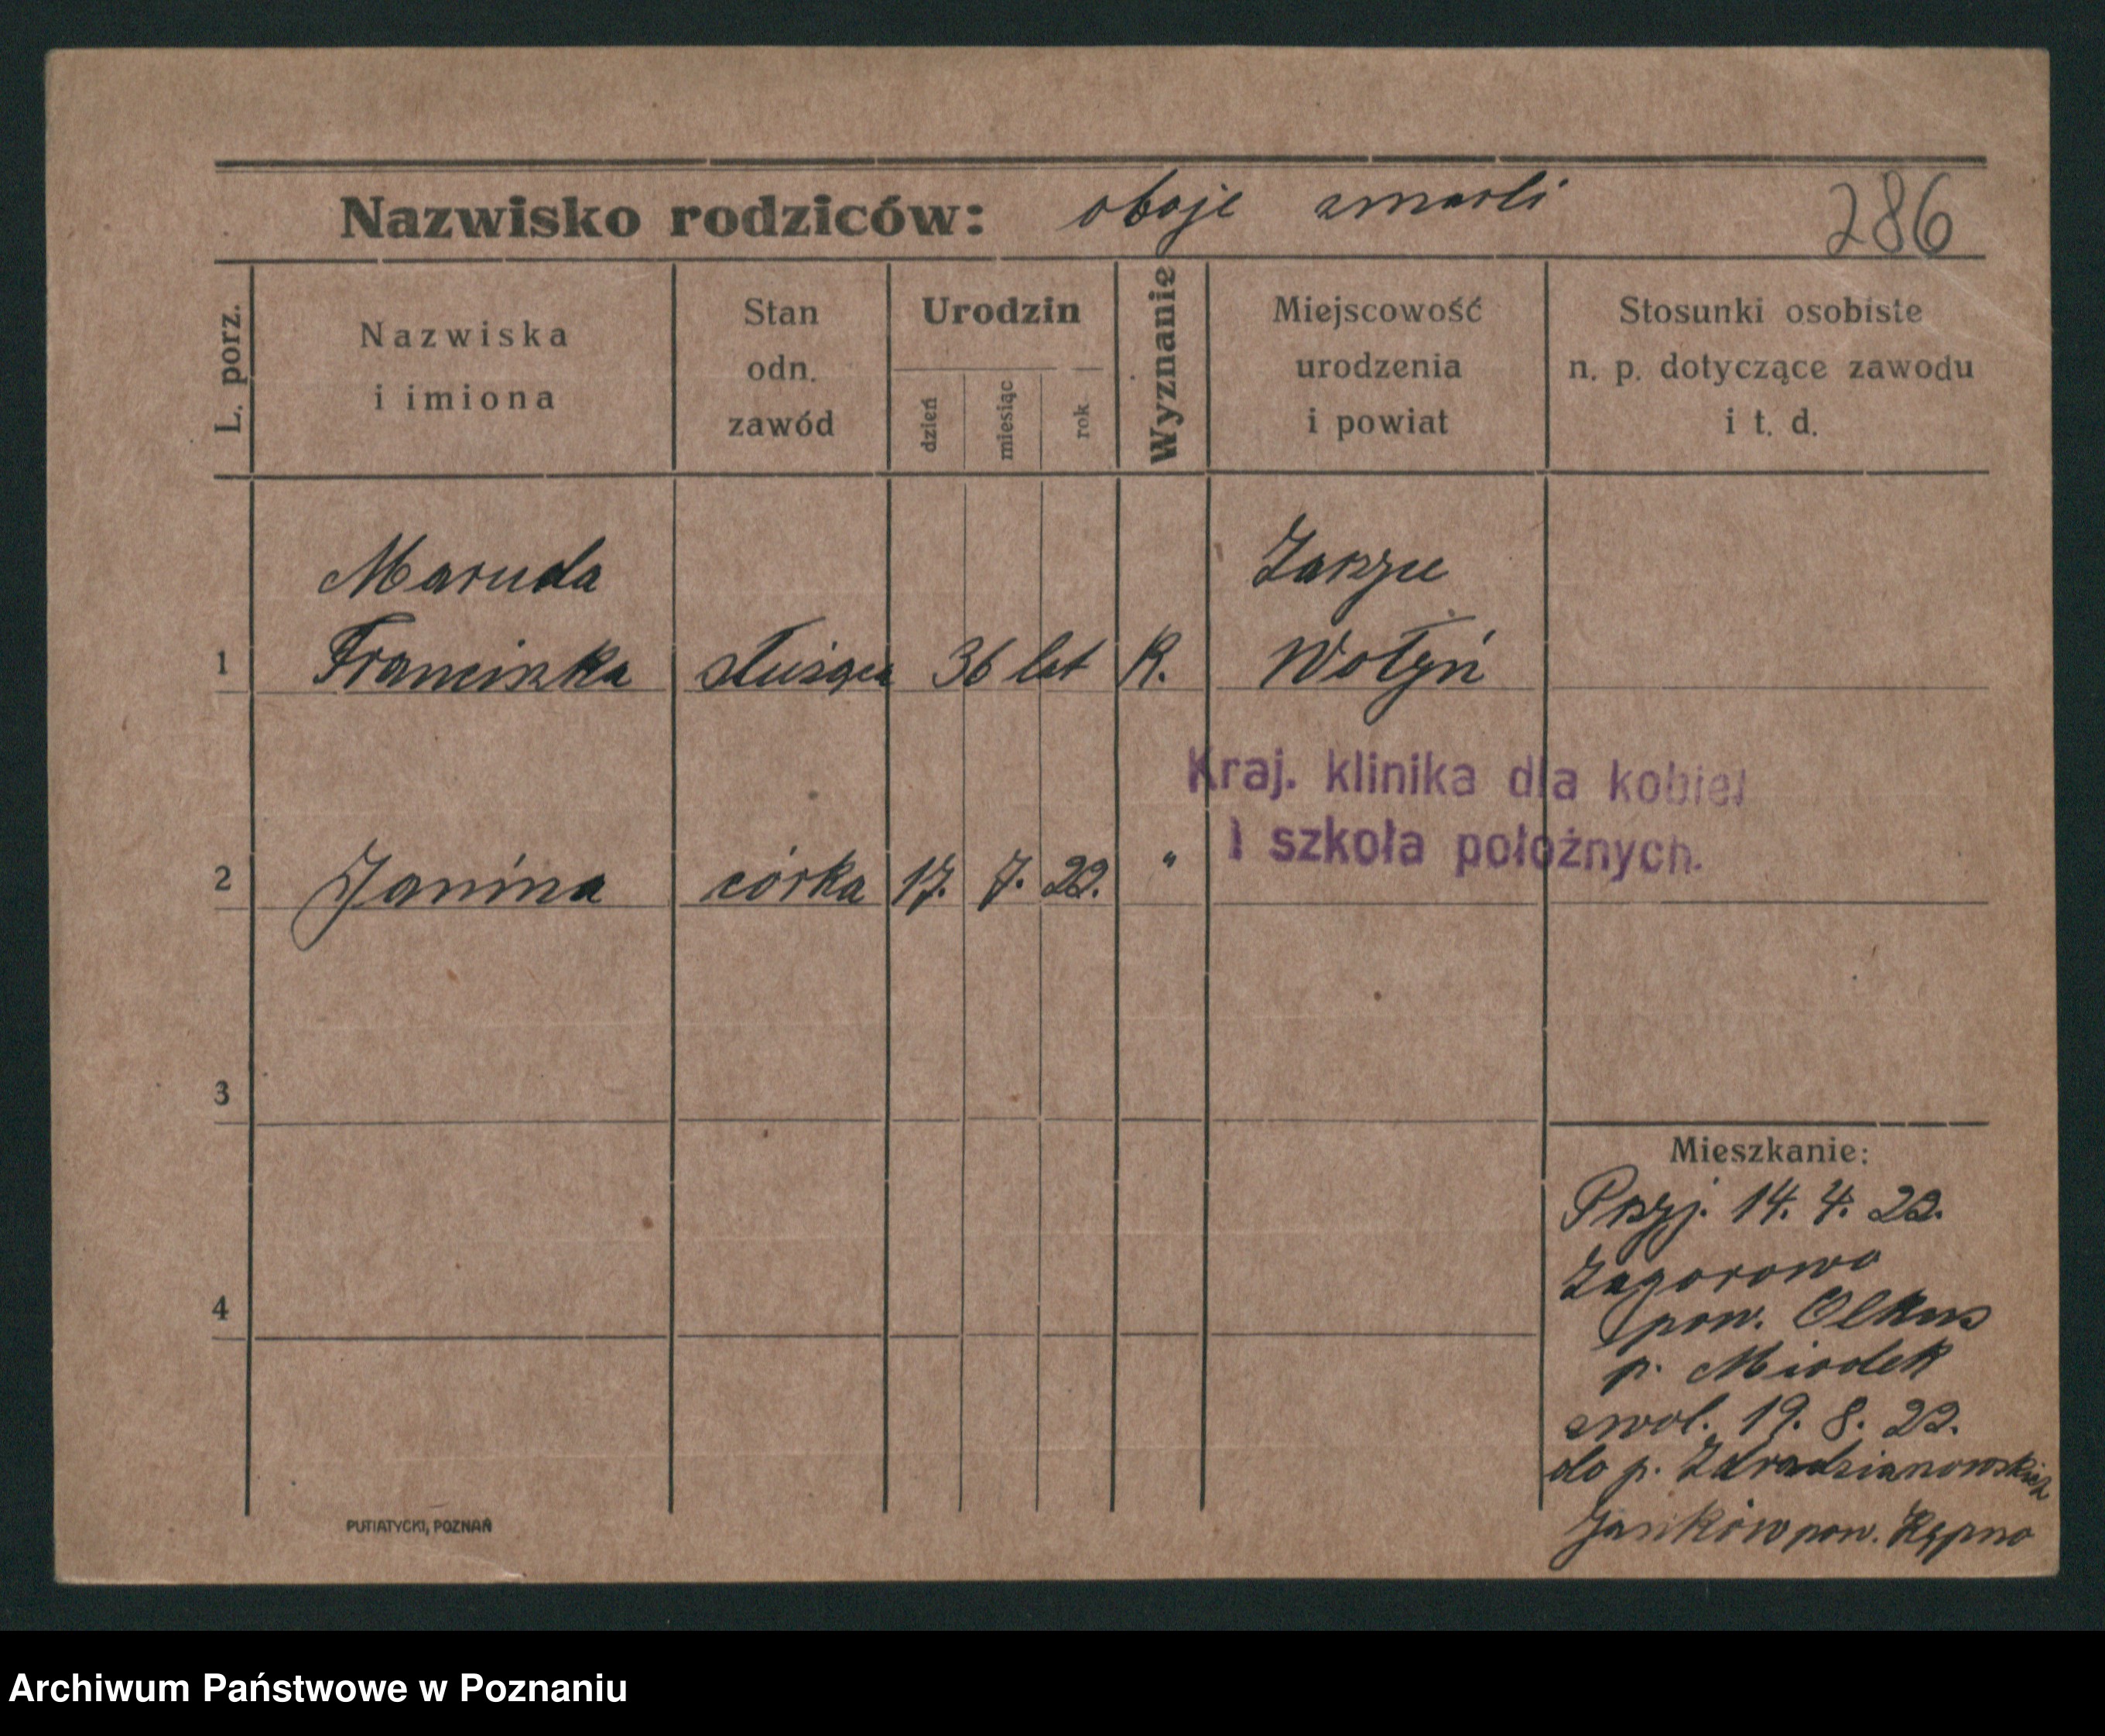 Nazwisko rodziców: oboje zmarli 286
L. porz.
Nazwiska
i imiona
Stan
odn.
zawód
Urodzin
dzień
miesiąc
rok
Wyznanie
Miejscowość
urodzenia
i powiat
Stosunki osobiste
n. p. dotyczące zawodu
i t. d.
Maruda Zarzu
1 Franciszka służąca 36 lat R. Wołyń
Kraj. klinika dla kobiet
i szkoła położnych.
2 Janina córka 17. 7. 22. "
3
4
Mieszkanie:
Przyj. 14. 4. 22.
Zagorowo
pow. Olkusz
p. Miodek
zwol. 19. 8. 22.
do p.
Janków pow. Kępno
PUTIATYCKI, POZNAŃ
Archiwum Państwowe w Poznaniu